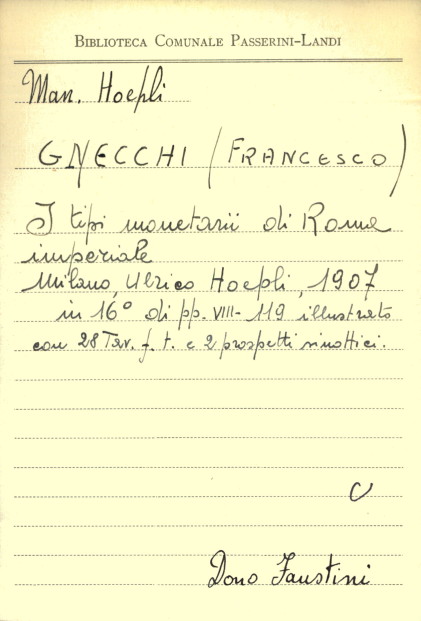 BIBLIOTECA COMUNALE PASSERINI-LANDI
Man. Hoepli
GNECCHI (FRANCESCO)
I tipi monetarii di Roma
imperiale
Milano, Ulrico Hoepli, 1907
in 16° di pp. VIII-119 illustrato
con 28 Tav. f. t. e 2 prospetti sinottici.
C
Dono Faustini